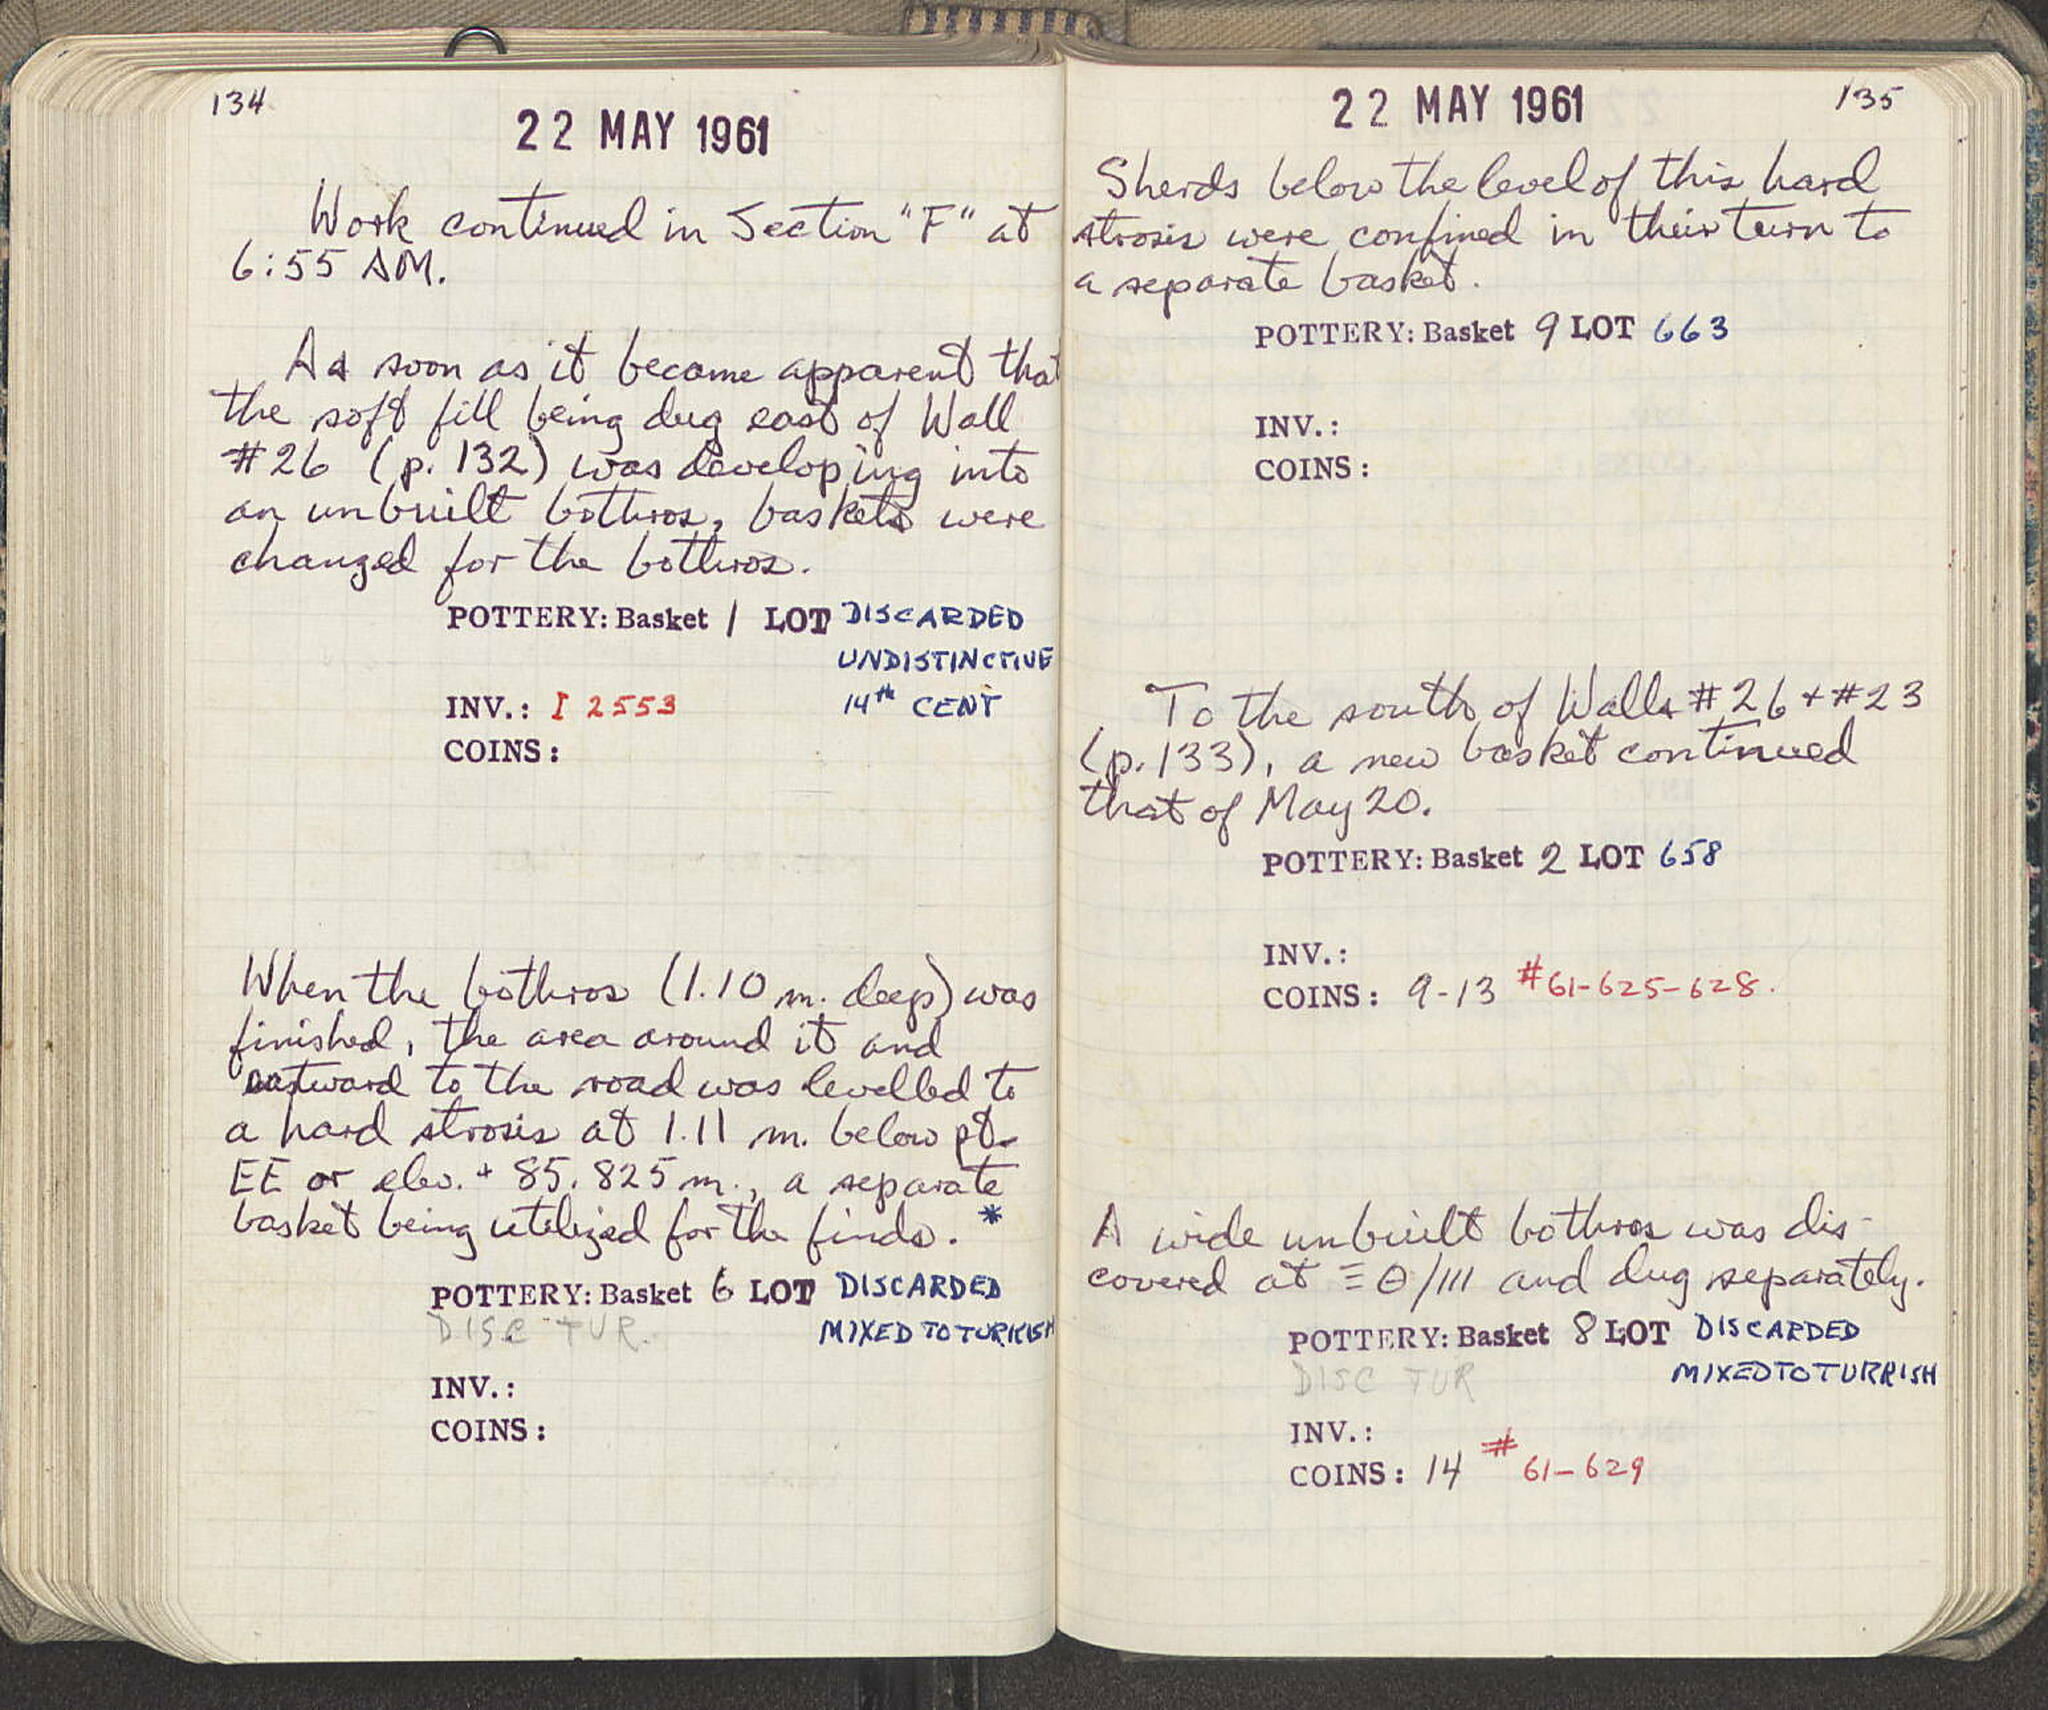 134
22 MAY 1961
Work continued in Section "F" at
6:55 AM.
As soon as it became apparent that
the soft fill being dug east of Wall
#26 (p. 132) was developing into
an unbuilt bothros, baskets were
changed for the bothros.
POTTERY: Basket 1 LOT DISCARDED
UNDISTINCTIVE
INV.: I 2553 14th CENT
COINS:
When the bothros (1.10 m. deep) was
finished, the area around it and
eastward to the road was levelled to
a hard strosis at 1.11 m. below pt.
EE or elev. + 85.825 m., a separate
basket being utilized for the finds. *
POTTERY: Basket 6 LOT DISCARDED
DISC TUR. MIXED TO TURKISH
INV.:
COINS:
135
22 MAY 1961
Sherds below the level of this hard
strosis were confined in their turn to
a separate basket.
POTTERY: Basket 9 LOT 663
INV.:
COINS:
To the south of Walls #26 + #23
(p. 133), a new basket continued
that of May 20.
POTTERY: Basket 2 LOT 658
INV.:
COINS: 9-13 #61-625-628.
A wide unbuilt bothros was dis-
covered at ΞΘ/111 and dug separately.
POTTERY: Basket 8 LOT DISCARDED
DISC TUR MIXED TO TURKISH
INV.:
COINS: 14 # 61-629